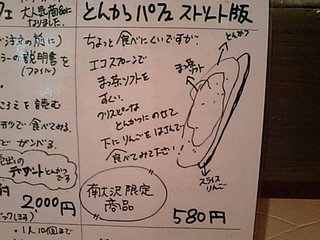 フェ 大人気商品に
なりました。
ご注文の前に)
ラーの説明書を
(ファイル)
ころえを読む
食べてみる。
デザートとんかつ
です
2000円
1人10個まで
とんかつパフェ ストリート版
ちょっと食べにくいですが、
エコスプーンで
まっ茶ソフトを
すくい、
クリスピーな
とんかつにのせて
下にりんごをはさんで
食べてみて下さい!
とんかつ
まっ茶
ソフト
スライス
りんご
南大沢限定
商品
580円